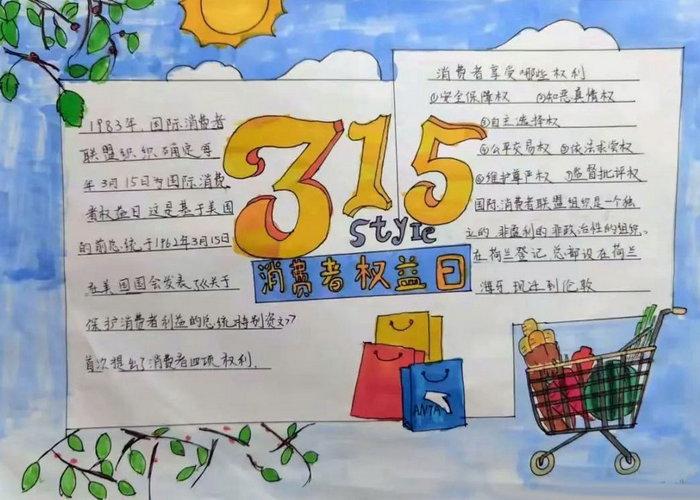 1983年,国际消费者
联盟组织确定每
年3月15日为国际消费
者权益日 这是基于美国
的前总统于1962年3月15日
在美国国会发表了《关于
保护消费者利益的总统特别资文》
首次提出了消费者四项权利.
315
Style
消费者权益日
消费者享受哪些权利
①安全保障权 ②知悉真情权
③自主选择权
④公平交易权 ⑤依法求受权
⑥维护尊严权 ⑦监督批评权
国际消费者联盟组织是一个独
立的 非盈利的非政治性的组织。
在荷兰登记 总部设在荷兰
海牙 现迁到伦敦
ANTA